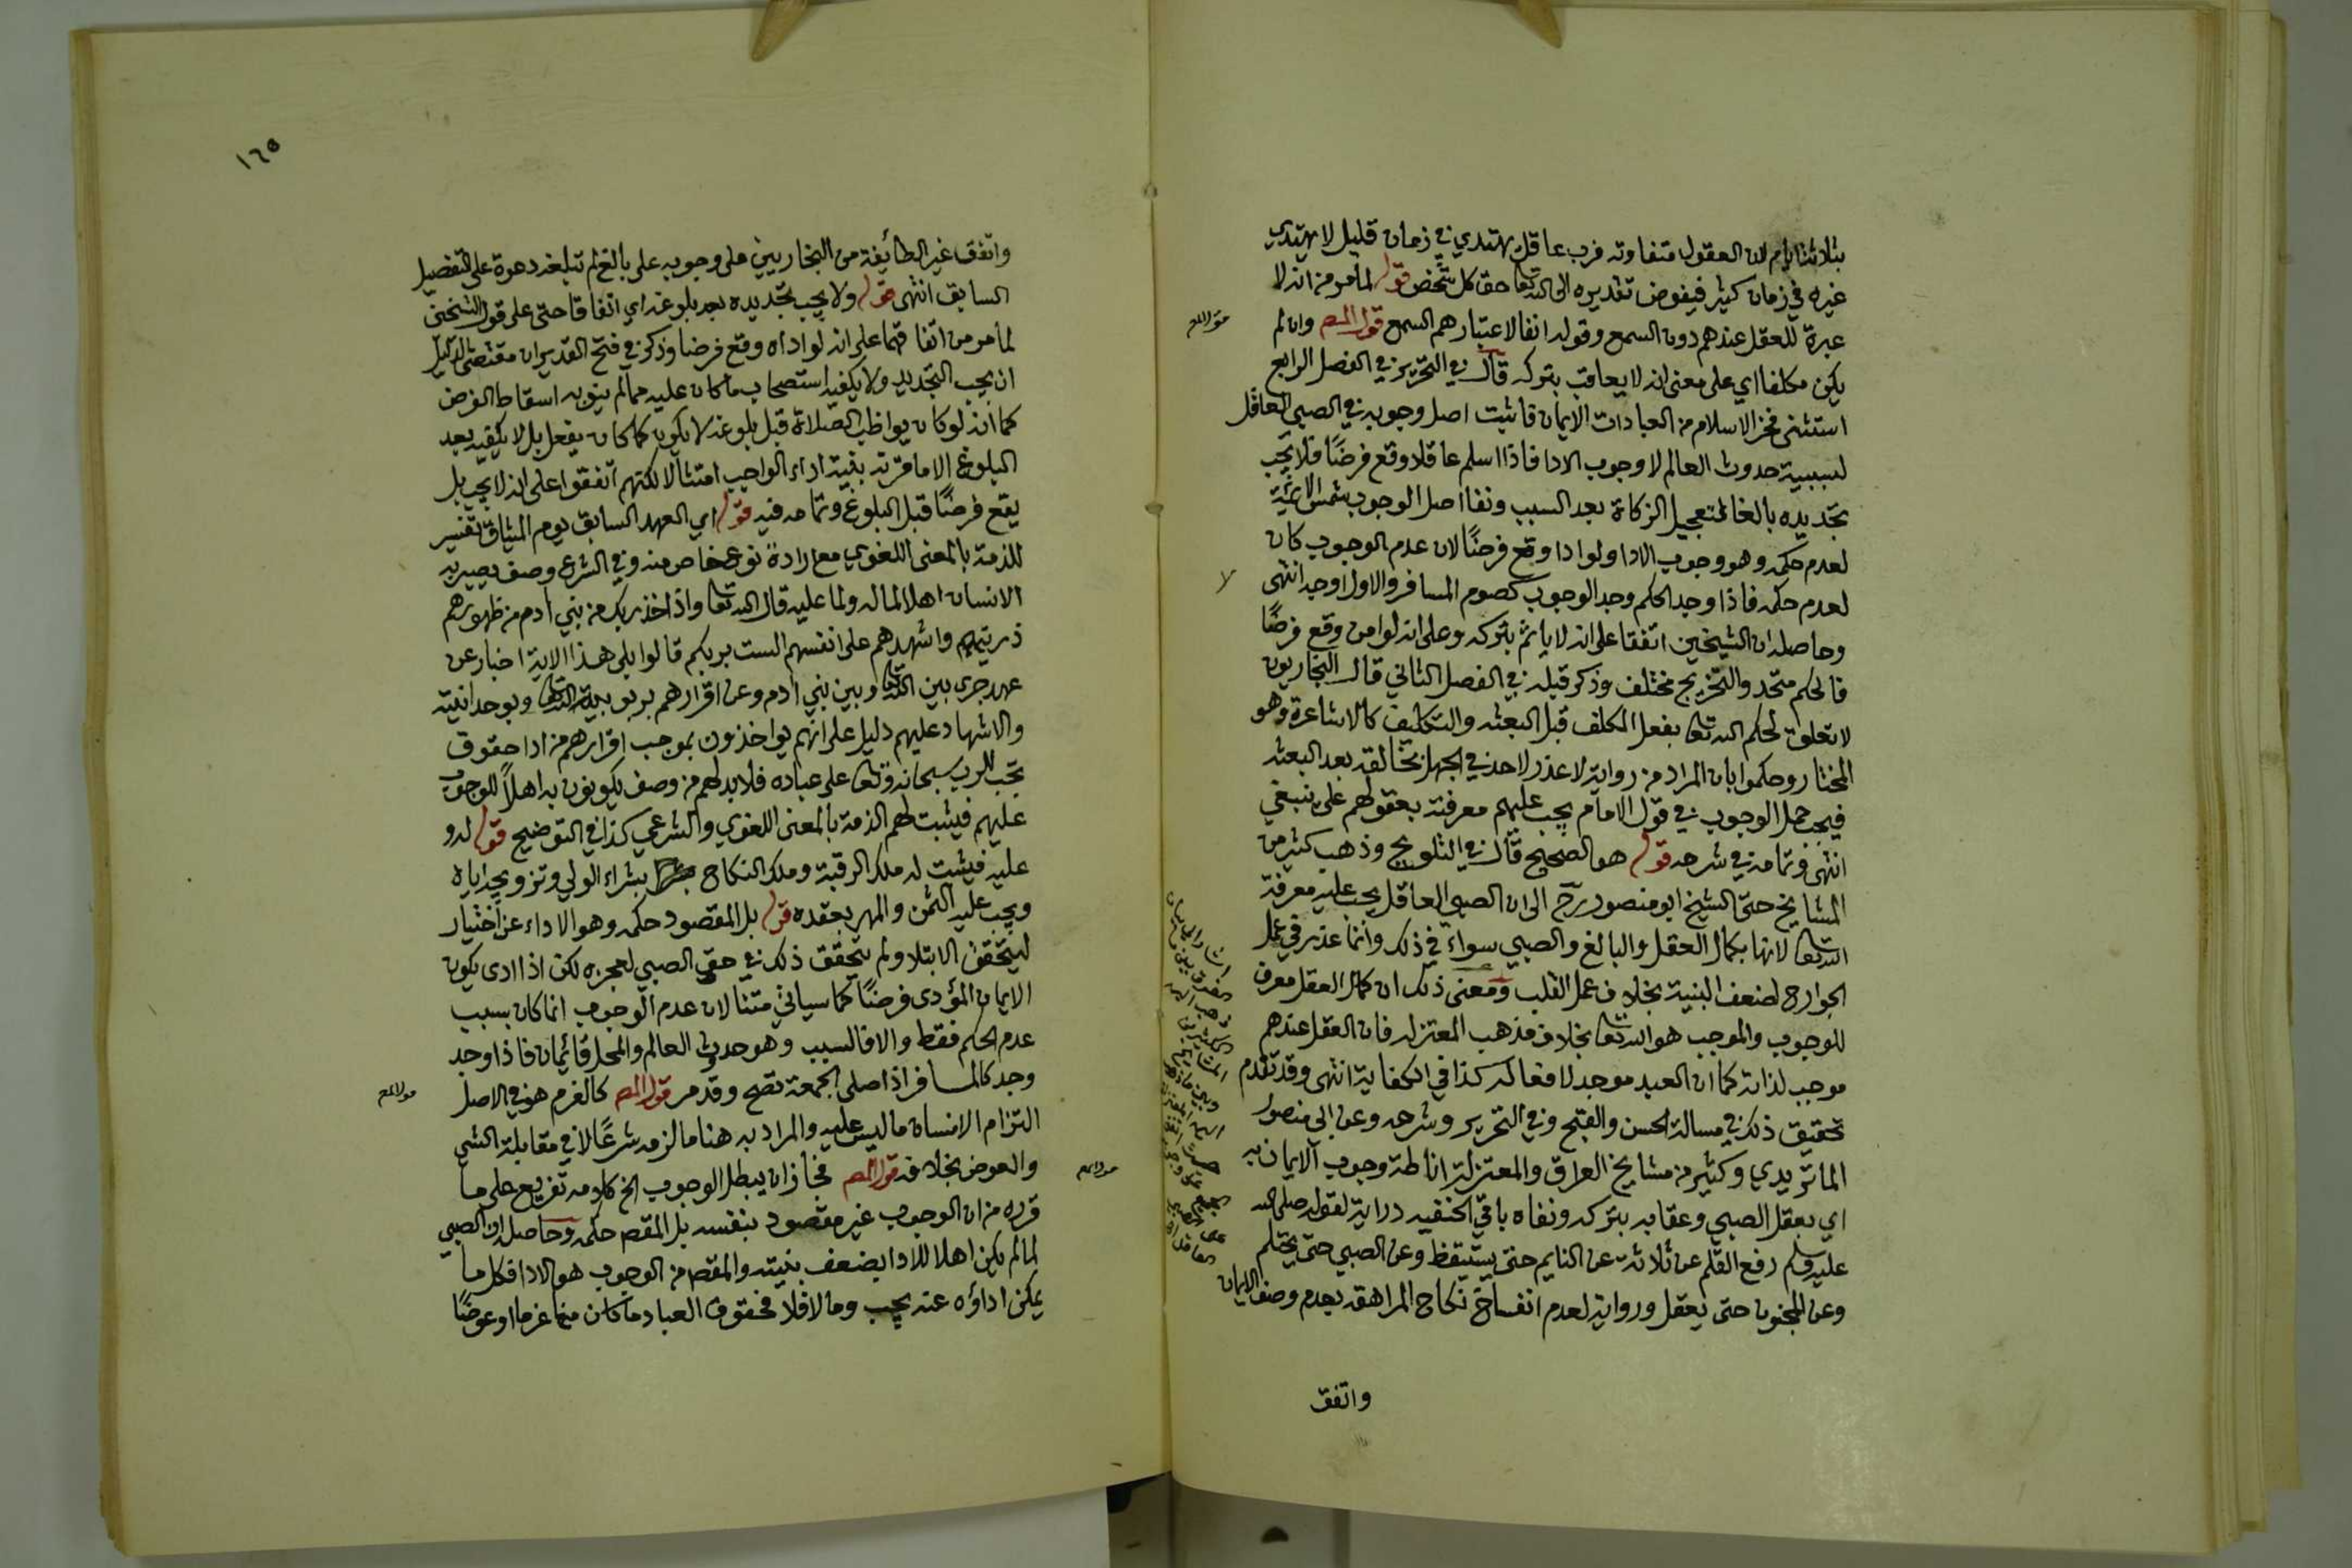 بثلاثة ايام لان العقول متفاوتة فرب عاقل يهتدي في زمان قليل لا يهتدي
غيره في زمان كثير فيفوض تقديره الى الله تعا حق كل شخص قوله لما مر من انه لا
عبرة للعقل عندهم دون السمع وقوله انفا لاعتبارهم السمع قول المصـ وان لم
يكن مكلفا اي على معنى انه لا يعاقب بتركه قال في التحرير في الفصل الرابع
استثنى فخر الاسلام من العبادات الايمان فاثبت اصل وجوبه في الصبي العاقل
لسببية حدوث العالم لا وجوب الادا فاذا اسلم عاقلا وقع فرضًا فلا يجب
تجديده بالغا كتعجيل الزكاة بعد السبب ونفا اصل الوجوب شمس الائمة
لعدم حكمه وهو وجوب الادا ولو ادا وقع فرضًا لان عدم الوجوب كان
لعدم حكمه فاذا وجد الحكم وجد الوجوب كصوم المسافر والاول اوجه انتهى
وحاصله ان الشيخين اتفقا على انه لا ياثم بتركه وعلى انه لو امن وقع فرضًا
فالحكم متحد والتخريج مختلف وذكر قبله في الفصل الثاني قال البخاريون
لا تعلق لحكم الله تعا بفعل المكلف قبل البعثه والتكليف كالاشاعرة وهو
المختار وحكموا بان المراد من رواية لا عذر لاحد في الجهل بخالقه بعد البعثه
فيجب حمل الوجوب في قول الامام يجب عليهم معرفته بعقولهم على ينبغي
انتهى وتمامه في شرحه قوله هو الصحيح قال في التلويح وذهب كثير من
المشايخ حتى الشيخ ابو منصور رح الى ان الصبي العاقل يجب عليه معرفة
الله تعا لانها بكمال العقل والبالغ والصبي سواء في ذلك وانما عذر في عمل
الجوارح لضعف البنية بخلاف عمل القلب ومعنى ذلك ان كمال العقل معرف
للوجوب والموجب هو الله تعا بخلاف مذهب المعتزله فان العقل عندهم
موجب لذاته كما ان العبد موجد لافعاله كذا في الكفاية انتهى وقد تقدم
تحقيق ذلك في مسالة الحسن والقبح وفي التحرير وشرحه وعن ابي منصور
الماتريدي وكثير من مشايخ العراق والمعتزلة اناطة وجوب الايمان به
اي بعقل الصبي وعقابه بتركه ونفاه باقي الحنفيه دراية لقوله صلى الله
عليه وسلم رفع القلم عن ثلاثة عن النايم حتى يستيقظ وعن الصبي حتى يحتلم
وعن المجنون حتى يعقل ورواية لعدم انفساخ نكاح المراهقه بعدم وصف الايمان
واتفق
١٦٥
واتفق غير الطائفة من البخاريين على وجوبه على بالغ لم تبلغه دعوة على التفصيل
السابق انتهى قوله ولا يجب تجديده بعد بلوغه اي اتفاقا حتى على قول الشيخين
لما مر من اتفاقهما على انه لو اداه وقع فرضا وذكر في فتح القدير ان مقتضى الدليل
ان يجب التجديد ولا يكفيه استصحاب ما كان عليه مما لم ينو به اسقاط الفرض
كما انه لو كان يواظب الصلاة قبل بلوغه لا يكون كما كان يفعل بل لا يكفيه بعد
البلوغ الا ما قرنه بنية اداء الواجب امتثالا لكنهم اتفقوا على انه لا يجب بل
يقع فرضًا قبل البلوغ وتمامه فيه قوله اي العهد السابق يوم الميثاق تفسير
للذمة بالمعنى اللغوي مع ارادة نوع خاص منه وفي الشرع وصف يصير به
الانسان اهلا لما له ولما عليه قال الله تعا واذ اخذ ربك من بني ادم من ظهورهم
ذريتهم واشهدهم على انفسهم الست بربكم قالوا بلى هذا الاية اخبار عن
عهد جرى بين الله تعا وبين بني ادم وعن اقرارهم بربوبية الله تعا وبوحدانيته
والاشهاد عليهم دليل على انهم يواخذون بموجب اقرارهم من ادا حقوق
تجب للرب سبحانه وتعا على عباده فلا بد لهم من وصف يكونون به اهلاً للوجوب
عليهم فيثبت لهم الذمة بالمعنى اللغوي والشرعي كذا في التوضيح قوله له و
عليه فيثبت له ملك الرقبة وملك النكاح بشراء الولي وتزويجه اياه
ويجب عليه الثمن والمهر بعقده قوله بل المقصود حكمه وهو الاداء عن اختيار
ليتحقق الابتلا ولم يتحقق ذلك في حق الصبي لعجزه لكن اذا ادى يكون
الايمان المؤدى فرضًا كما سياتي متنا لان عدم الوجوب انما كان بسبب
عدم الحكم فقط والا فالسبب وهو حدوث العالم والمحل قائمان فاذا وجد
وجد كالمسافر اذا صلى الجمعة تصح وقد مر قول المصـ كالغرم هو في الاصل
التزام الانسان ما ليس عليه والمراد به هنا ما لزمه شرعًا لا في مقابلة الشي
والعوض بخلافه قول المصـ فجاز ان يبطل الوجوب الخ كلامه تفريع على ما
قرره من ان الوجوب غير مقصود بنفسه بل المقصـ حكمه وحاصله ان الصبي
لما لم يكن اهلا للادا لضعف بنيته والمقصـ من الوجوب هو الادا فكل ما
يمكن اداؤه عنه يجب وما لا فلا فحقوق العباد ما كان منها غرما او عوضًا